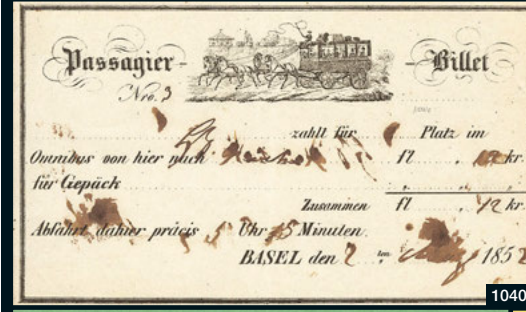 Passagier- -Billet
Nro. 3
zahlt für Platz im
Omnibus von hier nach fl . 12 kr.
für Gepäck
Zusammen fl . 12 kr.
Abfahrt dahier präcis 5 Uhr 15 Minuten.
BASEL den 2 ten 185
1040